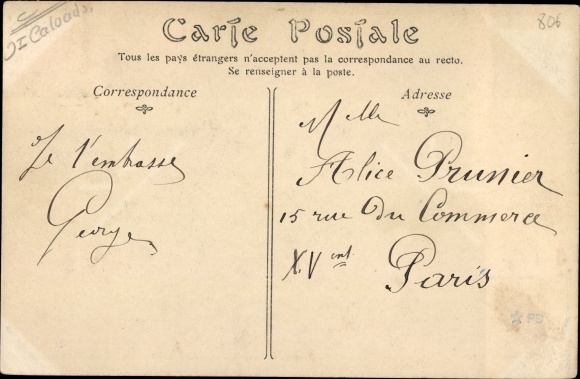 I Calvados.
806
Carte Postale
Tous les pays étrangers n'acceptent pas la correspondance au recto.
Se renseigner à la poste.
Correspondance
Je t'embrasse
George
Adresse
Melle
Alice Prunier
15 rue Du Commerce
XVemt
Paris